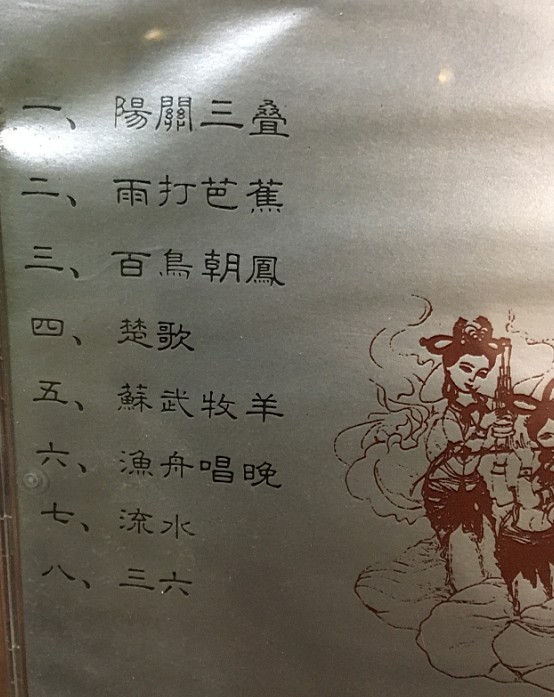 一、陽關三叠
二、雨打芭蕉
三、百鳥朝鳳
四、楚歌
五、蘇武牧羊
六、漁舟唱晚
七、流水
八、三六